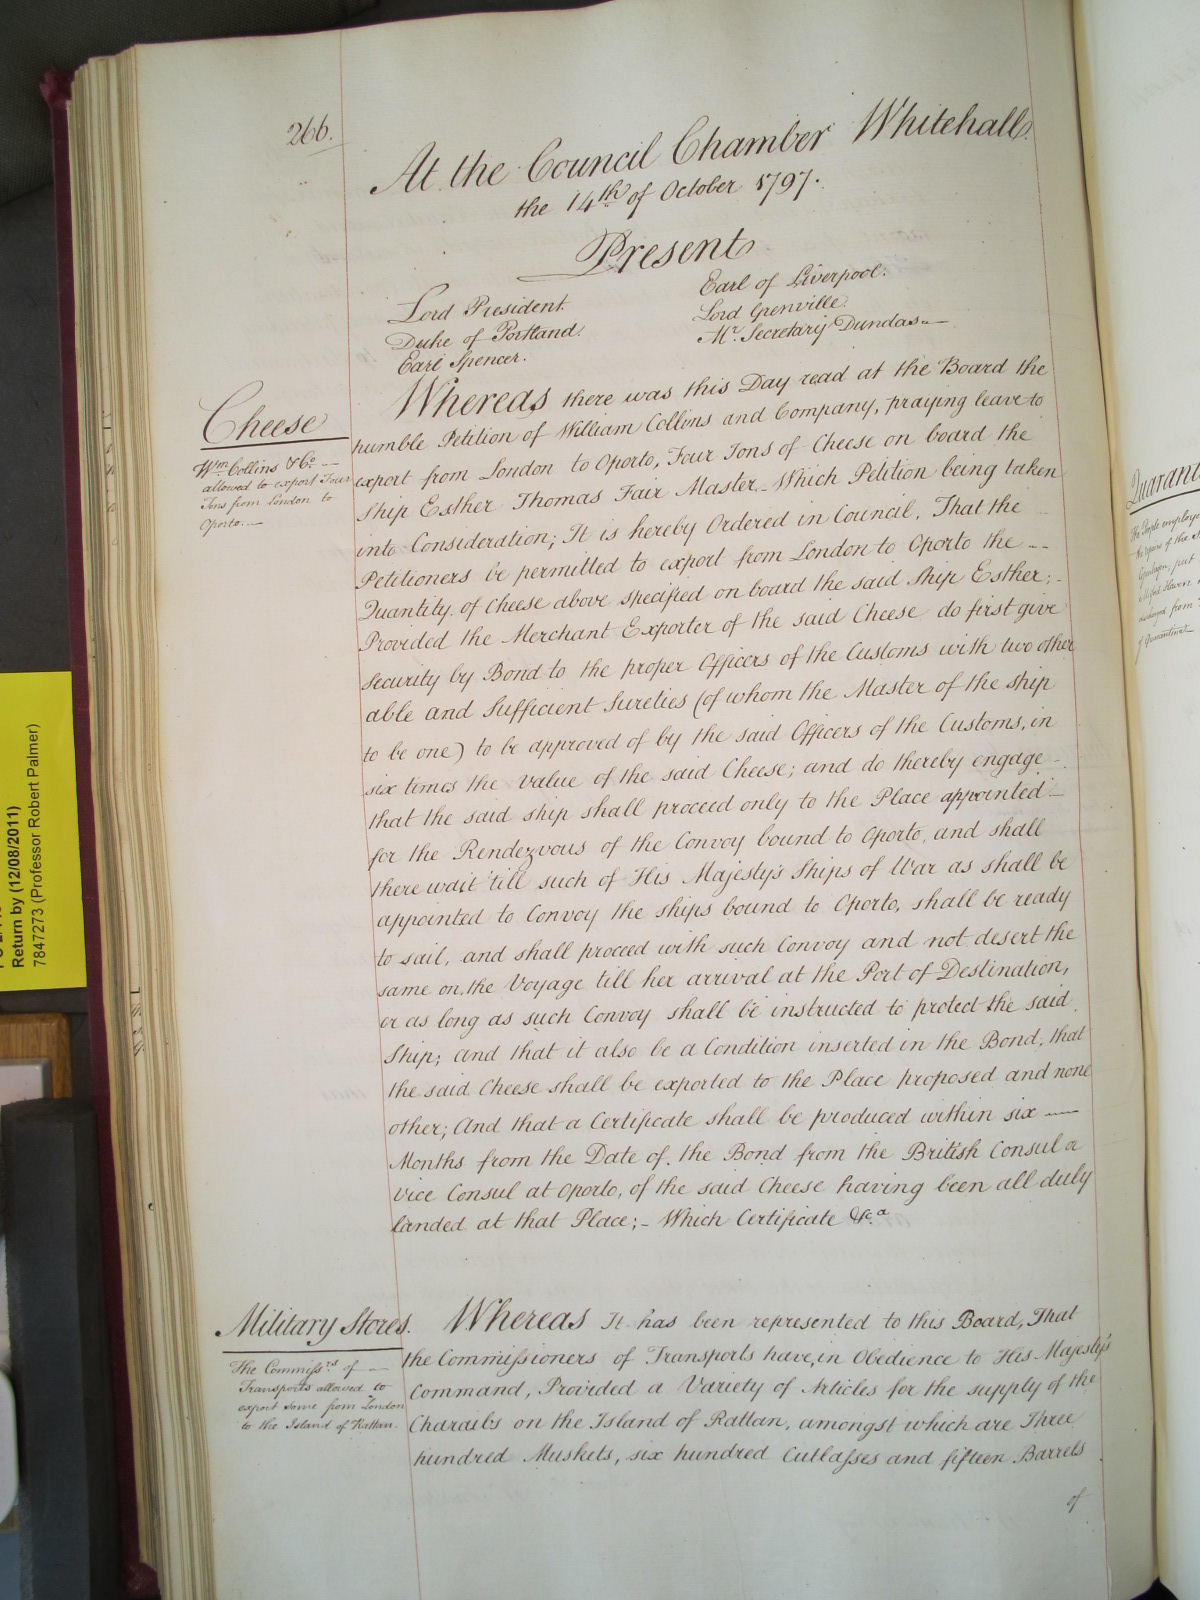 266.
At the Council Chamber Whitehall
the 14th of October 1797.
Present
Lord President.
Duke of Portland.
Earl Spencer.
Earl of Liverpool.
Lord Grenville.
Mr. Secretary Dundas.—
Cheese
Wm. Collins & Co. —
allowed to export Four
Tons from London to
Oporto.—
Whereas there was this Day read at the Board the
humble Petition of William Collins and Company, praying leave to
export from London to Oporto, Four Tons of Cheese on board the
Ship Esther Thomas Fair Master.- Which Petition being taken
into Consideration; It is hereby Ordered in Council, That the
Petitioners be permitted to export from London to Oporto the --
Quantity of Cheese above specified on board the said Ship Esther; -
Provided the Merchant Exporter of the said Cheese do first give
Security by Bond to the proper Officers of the Customs with two other
able and Sufficient Sureties (of whom the Master of the Ship
to be one) to be approved of by the said Officers of the Customs, in
six times the Value of the said Cheese; and do thereby engage -
that the said Ship shall proceed only to the Place appointed —
for the Rendezvous of the Convoy bound to Oporto, and shall
there wait 'till such of His Majesty's Ships of War as shall be
appointed to Convoy the Ships bound to Oporto, shall be ready
to sail, and shall proceed with such Convoy and not desert the
same on the Voyage till her arrival at the Port of Destination,
or as long as such Convoy shall be instructed to protect the said
Ship; and that it also be a Condition inserted in the Bond, that
the said Cheese shall be exported to the Place proposed and none
other; And that a Certificate shall be produced within six —
Months from the Date of the Bond from the British Consul or
Vice Consul at Oporto, of the said Cheese having been all duly
landed at that Place; - Which Certificate &c.a
Military Stores.
The Commissrs. of —
Transports allowed to
export some from London
to the Island of Rattan.
Whereas It has been represented to this Board, That
the Commissioners of Transports have, in Obedience to His Majesty's
Command, Provided a Variety of Articles for the supply of the
Charaibs on the Island of Rattan, amongst which are Three
hundred Muskets, six hundred Cutlasses and fifteen Barrels
of
Return by (12/08/2011)
7847273 (Professor Robert Palmer)